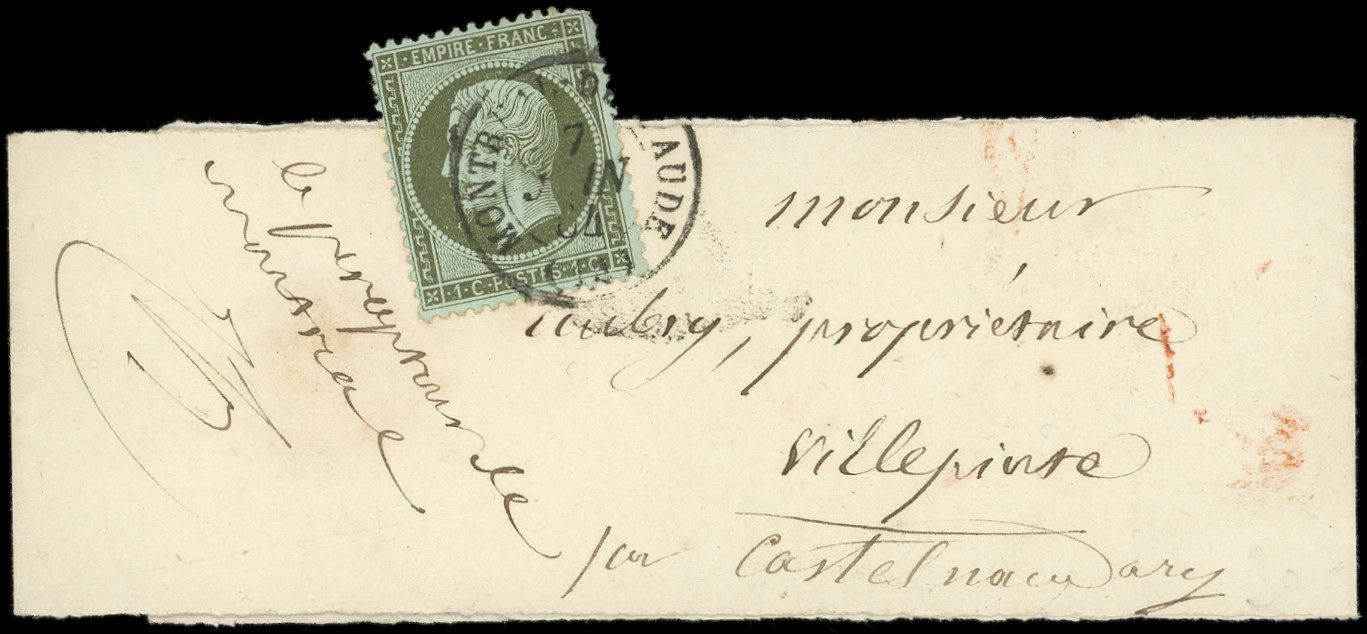 EMPIRE·FRANC
·1·C·POSTES·1·C·
MONTR AUDE
7
monsieur
aubry, propriétaire
Villepinte
par Castelnaudary
le percepteur de